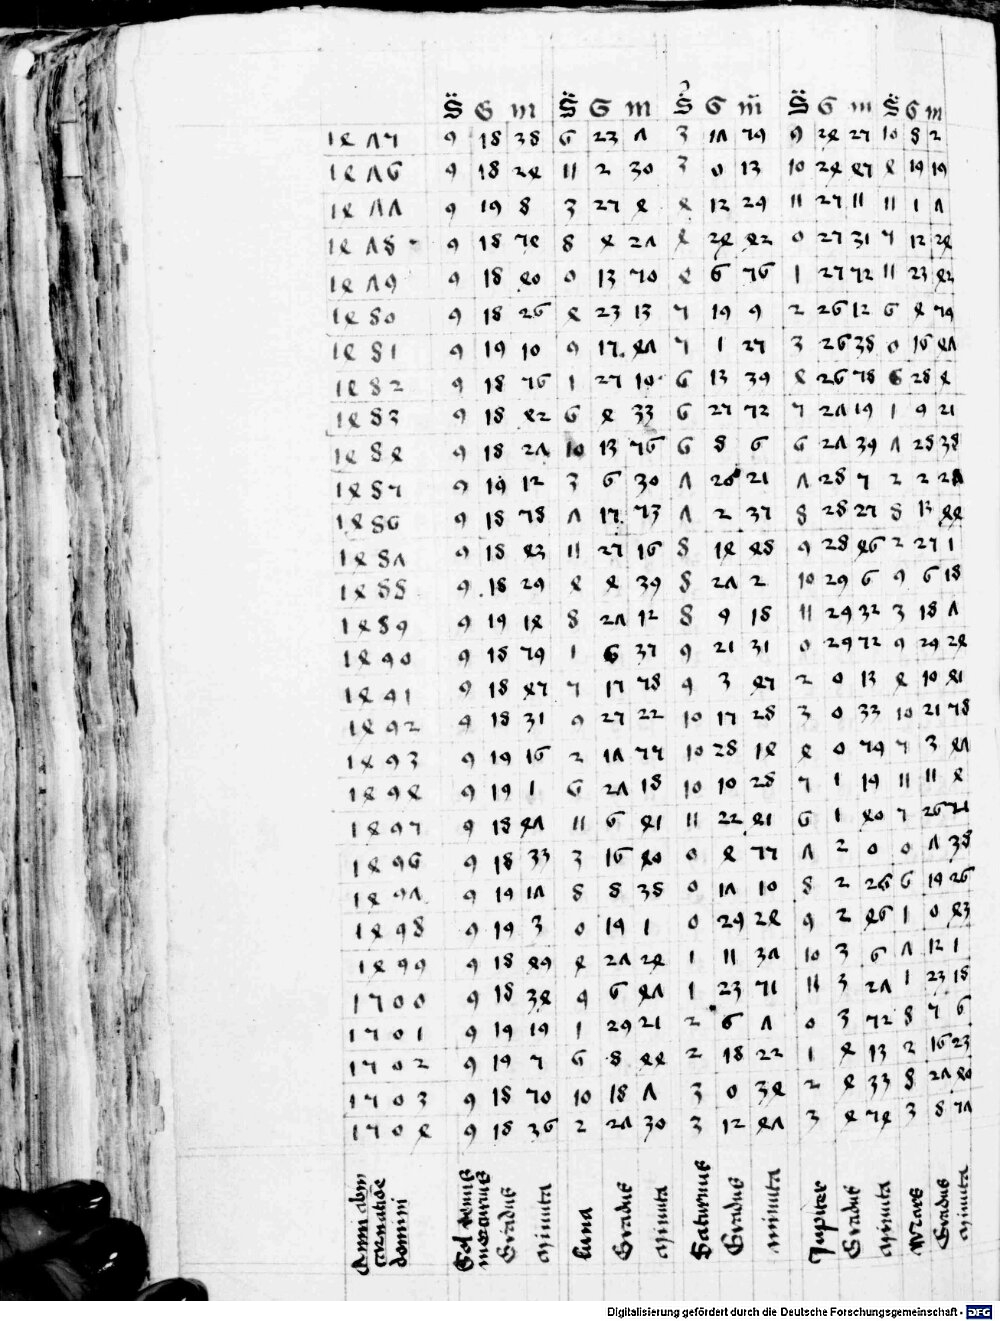 S G m S G m S G m S G m S G m
1475 9 18 38 6 23 7 3 17 59 9 24 25 10 8 2
1476 9 18 24 11 2 30 3 0 13 10 24 45 4 19 19
1477 9 19 8 3 25 4 4 12 29 11 25 11 11 1 7
1478 9 18 54 8 4 27 4 24 42 0 25 31 5 12 24
1479 9 18 40 0 13 50 4 6 56 1 25 52 11 23 42
1480 9 18 26 4 23 13 5 19 9 2 26 12 6 4 59
1481 9 19 10 9 15 47 5 1 25 3 26 38 0 16 47
1482 9 18 56 1 25 10 6 13 39 4 26 58 6 28 4
1483 9 18 42 6 4 33 6 25 52 5 27 19 1 9 21
1484 9 18 27 10 13 56 6 8 6 6 27 39 7 28 38
1485 9 19 12 3 6 30 7 20 21 7 28 5 2 2 27
1486 9 18 58 7 15 53 7 2 35 8 28 25 8 13 44
1487 9 18 43 11 25 16 8 14 48 9 28 46 2 25 1
1488 9 18 29 4 4 39 8 27 2 10 29 6 9 6 18
1489 9 19 14 8 27 12 8 9 18 11 29 32 3 18 7
1490 9 18 59 1 6 35 9 21 31 0 29 52 9 29 24
1491 9 18 45 5 15 58 9 3 45 2 0 13 4 10 41
1492 9 18 31 9 25 22 10 15 28 3 0 33 10 21 58
1493 9 19 16 2 17 55 10 28 14 4 0 59 5 3 47
1494 9 19 1 6 27 18 10 10 28 5 1 19 11 11 4
1495 9 18 47 11 6 41 11 22 41 6 1 40 5 26 21
1496 9 18 33 3 16 40 0 4 55 7 2 0 0 7 38
1497 9 19 17 8 8 38 0 17 10 8 2 26 6 19 26
1498 9 19 3 0 19 1 0 29 24 9 2 46 1 0 43
1499 9 18 49 4 27 24 1 11 37 10 3 6 7 12 1
1500 9 18 34 9 6 47 1 23 51 11 3 27 1 23 18
1501 9 19 19 1 29 21 2 6 7 0 3 52 8 5 6
1502 9 19 5 6 8 44 2 18 22 1 4 13 2 16 23
1503 9 18 50 10 18 7 3 0 34 2 4 33 8 27 40
1504 9 18 36 2 27 30 3 12 47 3 4 54 3 8 57
Anni abin
carnatiõe
domini
Sol venus
mercurius
Gradus
minuta
luna
Gradus
minuta
Saturnus
Gradus
minuta
Jupiter
Gradus
minuta
Mars
Gradus
minuta
Digitalisierung gefördert durch die Deutsche Forschungsgemeinschaft - DFG